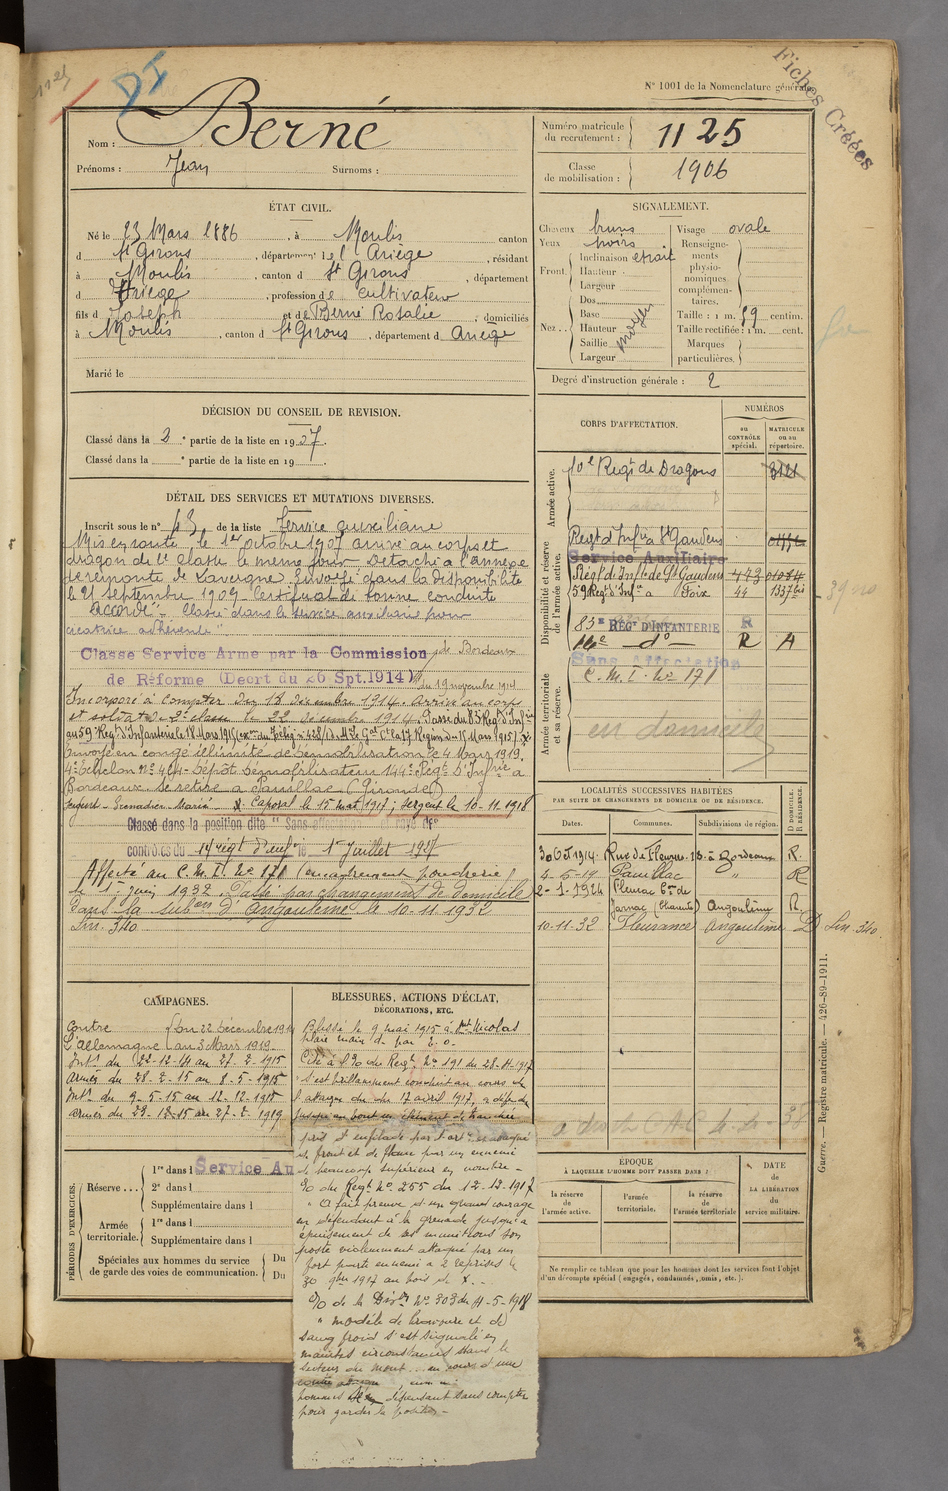 1125
DI
Fiches Créées
N° 1001 de la Nomenclature générale
Nom : Berné
Prénoms : Jean Surnoms :
Numéro matricule du recrutement : 1125
Classe de mobilisation : 1906
ÉTAT CIVIL.
Né le 23 Mars 1886, à Moulis canton
d St Girons, département de l'Ariège, résidant
à Moulis, canton d St Girons, département
d Ariège, profession de cultivateur
fils d Joseph et de Berné Rosalie, domiciliés
à Moulis, canton d St Girons, département d Ariège
Marié le
SIGNALEMENT.
Cheveux bruns
Yeux noirs
Front Inclinaison étroit
Hauteur
Largeur
Nez Dos
Base
Hauteur moyen
Saillie
Largeur
Visage ovale
Renseignements physionomiques complémentaires.
Taille : 1 m. 59 centim.
Taille rectifiée : 1 m. cent.
Marques particulières.
Degré d'instruction générale : 2
DÉCISION DU CONSEIL DE REVISION.
Classé dans la 2e partie de la liste en 1907.
Classé dans la e partie de la liste en 19
DÉTAIL DES SERVICES ET MUTATIONS DIVERSES.
Inscrit sous le n° 43 de la liste Service auxiliaire
Mis en route le 1er octobre 1907 arrivé au corps et
dragon de 2e classe le même jour. Détaché à l'annexe
de remonte de Lavergne. Envoyé dans la disponibilité
le 21 septembre 1909. Certificat de bonne conduite
Accordé. Classé dans le service auxiliaire pour
cicatrice adhérente".
Classe Service Arme par la Commission de Bordeaux
de Réforme (Decrt du 26 Spt.1914) du 19 novembre 1914
Incorporé à compter du 18 décembre 1914. Arrivé au corps
et soldat de 2e classe le 22 décembre 1914. Passé du 83 Régt d'Infie
au 59e Régt d'Infanterie le 18 Mars 1915
Envoyé en congé illimité de démobilisation le 4 Mars 1919.
4e échelon n° 484 Dépôt démobilisateur 144e Régt d'Infrie à
Bordeaux. Se retire à Pauillac (Gironde)
Caporal le 15 mai 1917 ; sergent le 10-11-1918
Classé dans la position dite "Sans affectation rayé des
contrôles du 14e régt d'inf le 1er Juillet 1927
Affecté au C. M. I. N° 178 (encadrement poudrerie)
le 1er juin 1932. Passé par changement de domicile
dans la subon d'Angoulême le 10-11-1932
Lin. 340
CORPS D'AFFECTATION.
NUMÉROS
au CONTRÔLE spécial.
MATRICULE ou au répertoire.
Armée active.
10e Régt de Dragons 3121
Disponibilité et réserve de l'armée active.
Régt d'Infie St Gaudens
Service Auxiliaire
Régt d'Infie de St Gaudens 473
59 Régt d'Infie à Foix 44 1337 bis
83e REGt D'INFANTERIE R
14e - do - R A
Armée territoriale et sa réserve.
Sans Affectation
C. M. I. N° 178
en domicile
LOCALITÉS SUCCESSIVES HABITÉES
PAR SUITE DE CHANGEMENTS DE DOMICILE OU DE RÉSIDENCE.
Dates. Communes. Subdivisions de région. D DOMICILE. R RÉSIDENCE.
30 Oct 1914 Rue de Fleurus à Bordeaux R.
4-5-19 Pauillac " R
2-1-1924 Fleurac Cne de Jarnac (Charente) Angoulême R.
10-11-32 Fleurance Angoulême D Lin. 340.
CAMPAGNES.
Contre l'Allemagne du 22 décembre 1914
au 3 Mars 1919.
Intr du 22-12-14 au 27-2-1915
Armées du 28-2-15 au 8-5-1915
Intr du 9-5-15 au 12-12-1915
armées du 23-12-15 au 27-2-1919
BLESSURES, ACTIONS D'ÉCLAT,
DÉCORATIONS, ETC.
Blessé le 9 mai 1915 à St Nicolas
plaie main d. par E. O.
Cité à l'O du Régt N° 191 du 28-4-1917
"s'est brillamment conduit au cours de
l'attaque du 17 avril 1917, a défendu
jusqu'au bout un élément de tranchée
pris d'enfilade par l'artie et attaqué
de front et de flanc par un ennemi
de beaucoup supérieur en nombre -
O du Régt N° 255 du 12-12-1917
"A fait preuve d'un grand courage
en défendant à la grenade jusqu'à
épuisement de ses munitions son
poste violemment attaqué par un
fort parti ennemi à 2 reprises le
30 9bre 1917 au bois de X.
O de la Divon N° 303 du 11-5-1918
"modèle de bravoure et de
sang froid s'est signalé en
maintes circonstances dans le
secteur du mont en cours d'une
hommes dépensant sans compter
pour garder la position -
PÉRIODES D'EXERCICES.
Réserve 1re dans l Service Au
2e dans l
Supplémentaire dans l
Armée territoriale. 1re dans l
Supplémentaire dans l
Spéciales aux hommes du service de garde des voies de communication. Du
Du
ÉPOQUE
À LAQUELLE L'HOMME DOIT PASSER DANS :
la réserve de l'armée active.
l'armée territoriale.
la réserve de l'armée territoriale
DATE DE LA LIBÉRATION du service militaire.
Ne remplir ce tableau que pour les hommes dont les services font l'objet
d'un décompte spécial (engagés, condamnés, omis, etc.).
Guerre. — Registre matricule. — 426-89-1911.